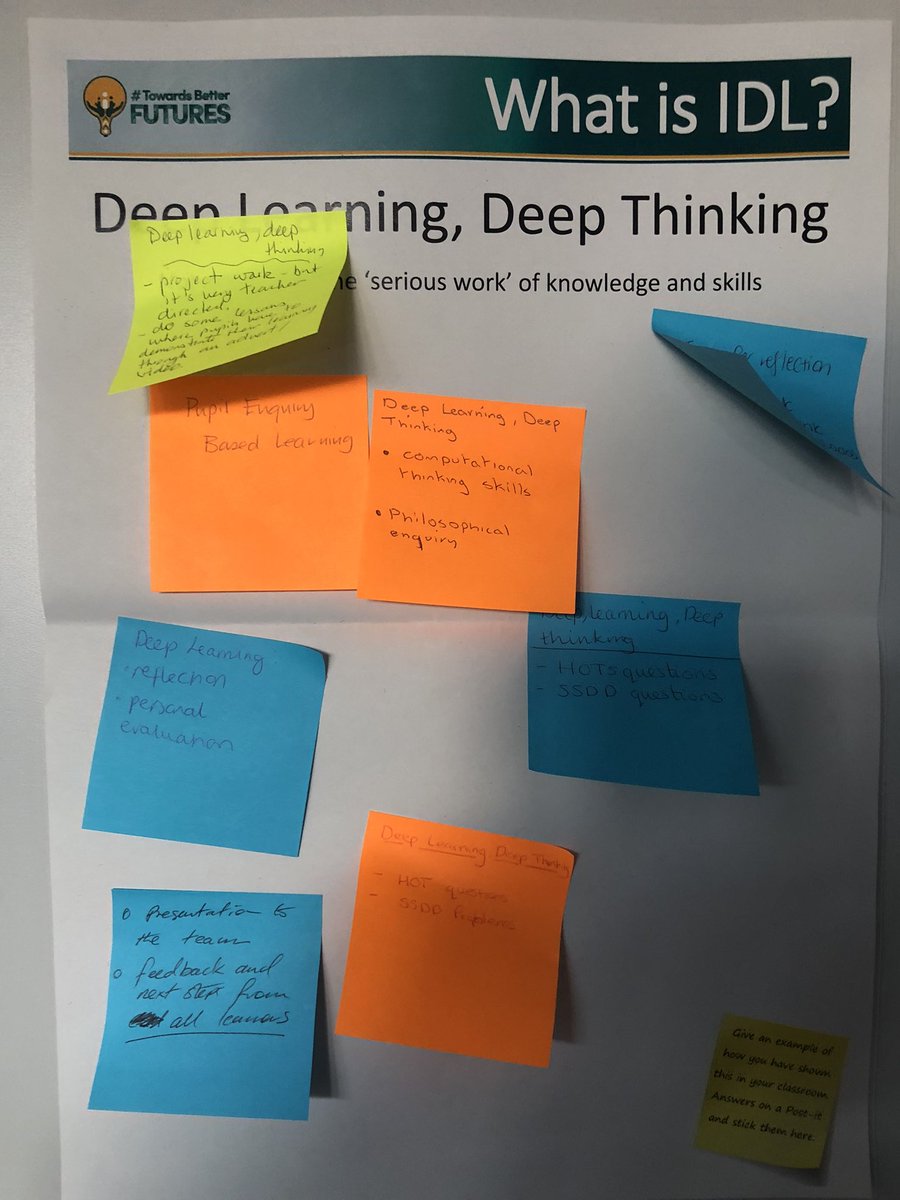 # Towards Better
FUTURES
What is IDL?
Deep Learning, Deep Thinking
'serious work' of knowledge and skills
Deep learning, deep
thinking
- project work - but
it's very teacher
directed.
- do some lessons
where pupils have to
demonstrate their learning
through an advert/
video
reflection
Pupil Enquiry
Based Learning
Deep Learning, Deep
Thinking
• computational
thinking skills
• Philosophical
enquiry
Deep Learning
• reflection
• personal
evaluation
Deep, learning, Deep
thinking
- HOTs questions
- SSDD questions
Deep Learning Deep Thinking
- HOT questions
- SSDD Problems
o Presentation to
the team
o feedback and
next step from
all learners
Give an example of
how you have shown
this in your classroom.
Answers on a Post-it
and stick them here.